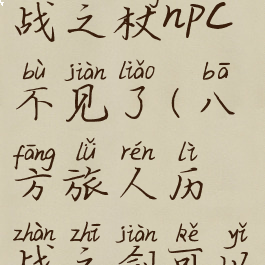 战之杖npc
bù jiàn liǎo bā
不见了(八
fāng lǚ rén lì
方旅人历
zhàn zhī jiàn kě yǐ
战之剑可以